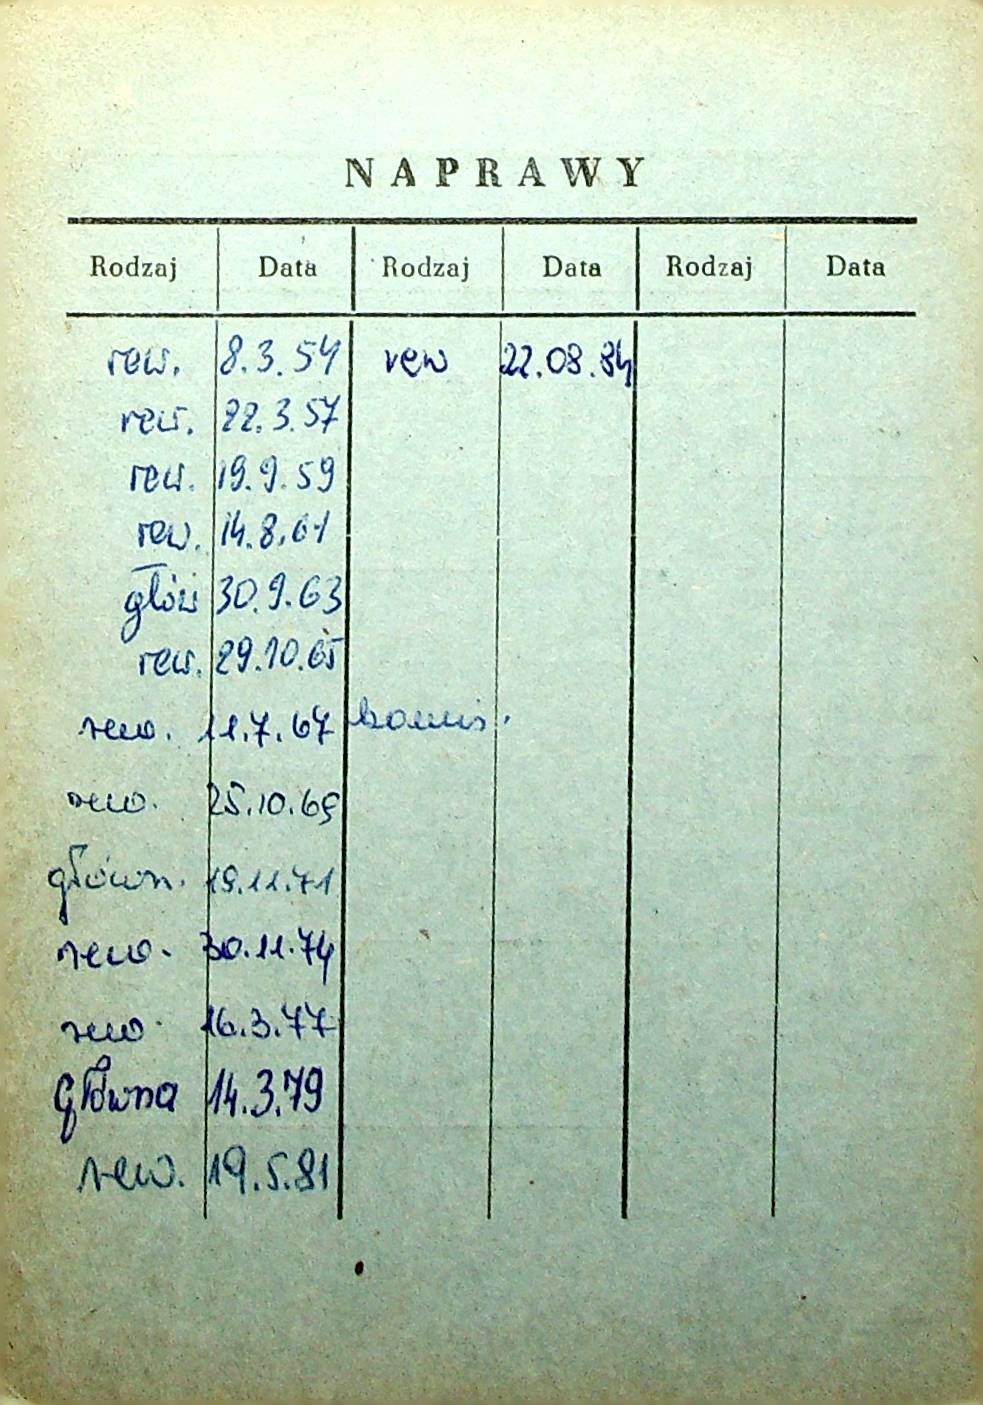 NAPRAWY
Rodzaj Data Rodzaj Data Rodzaj Data
rew. 8.3.54 rew 22.08.84
rew. 22.3.57
rew. 19.9.59
rew. 14.8.61
głów 30.9.63
rew. 29.10.65
rew. 11.7.67
rew. 25.10.69
główn. 19.11.71
rew. 30.11.74
rew. 16.3.77
główna 14.3.79
rew. 19.5.81